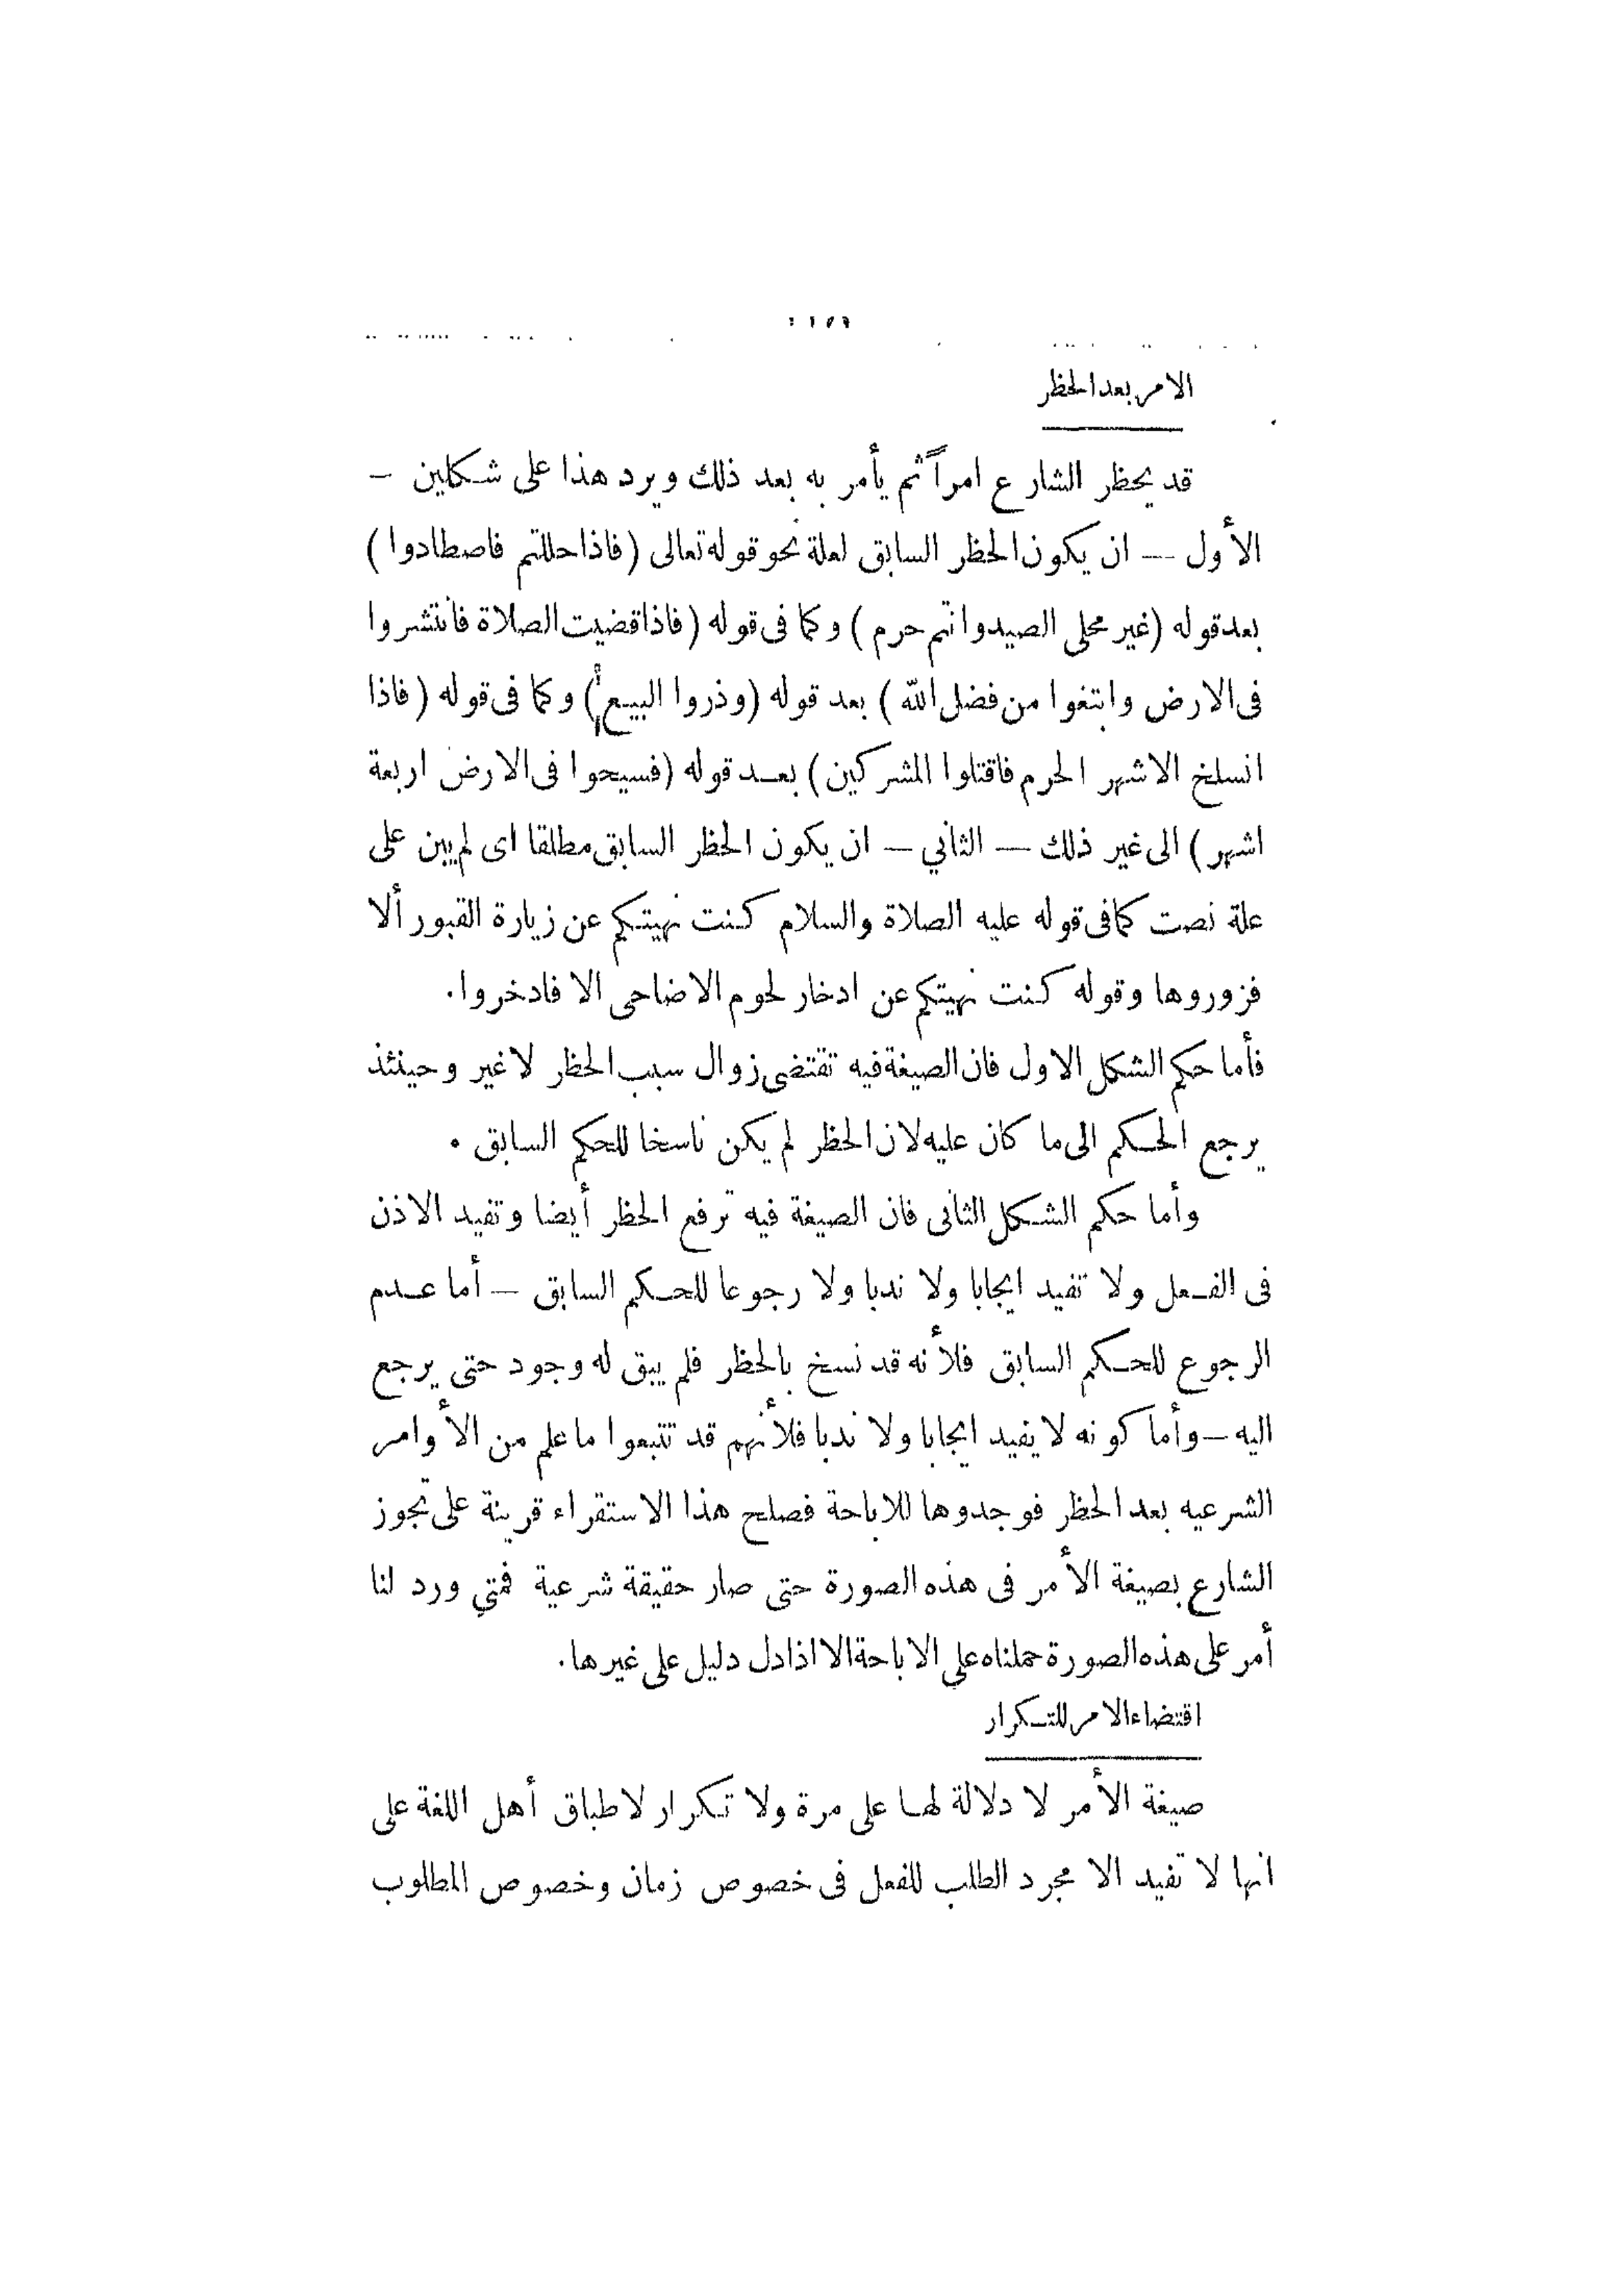 الامر بعد الحظر
قد يحظر الشارع امراً ثم يأمر به بعد ذلك ويرد هذا على شكلين –
الأول — ان يكون الحظر السابق لعلة نحو قوله تعالى (فاذا حللتم فاصطادوا)
بعد قوله (غير محلى الصيد وانتم حرم) وكما فى قوله (فاذا قضيت الصلاة فانتشروا
فى الارض وابتغوا من فضل الله) بعد قوله (وذروا البيع) وكما فى قوله (فاذا
انسلخ الاشهر الحرم فاقتلوا المشركين) بعد قوله (فسيحوا فى الارض اربعة
اشهر) الى غير ذلك — الثاني – ان يكون الحظر السابق مطلقا اى لم يبن على
علة نصت كما فى قوله عليه الصلاة والسلام كنت نهيتكم عن زيارة القبور ألا
فزوروها وقوله كنت نهيتكم عن ادخار لحوم الاضاحى الا فادخروا.
فأما حكم الشكل الاول فان الصيغة فيه تقتضى زوال سبب الحظر لا غير وحينئذ
يرجع الحكم الى ما كان عليه لان الحظر لم يكن ناسخا للحكم السابق .
وأما حكم الشكل الثانى فان الصيغة فيه ترفع الحظر أيضا وتفيد الاذن
فى الفعل ولا تفيد ايجابا ولا ندبا ولا رجوعا للحكم السابق – أما عدم
الرجوع للحكم السابق فلأنه قد نسخ بالحظر فلم يبق له وجود حتى يرجع
اليه – وأما كونه لا يفيد ايجابا ولا ندبا فلأنهم قد تتبعوا ما علم من الأوامر
الشرعيه بعد الحظر فوجدوها للاباحة فصلح هذا الاستقراء قرينة على تجوز
الشارع بصيغة الأمر فى هذه الصورة حتى صار حقيقة شرعية فمتي ورد لنا
أمر على هذه الصورة حملناه على الاباحة الا اذا دل دليل على غيرها.
اقتضاء الامر للتكرار
صيغة الأمر لا دلالة لها على مرة ولا تكرار لاطباق أهل اللغة على
انها لا تفيد الا مجرد الطلب للفعل فى خصوص زمان وخصوص المطلوب